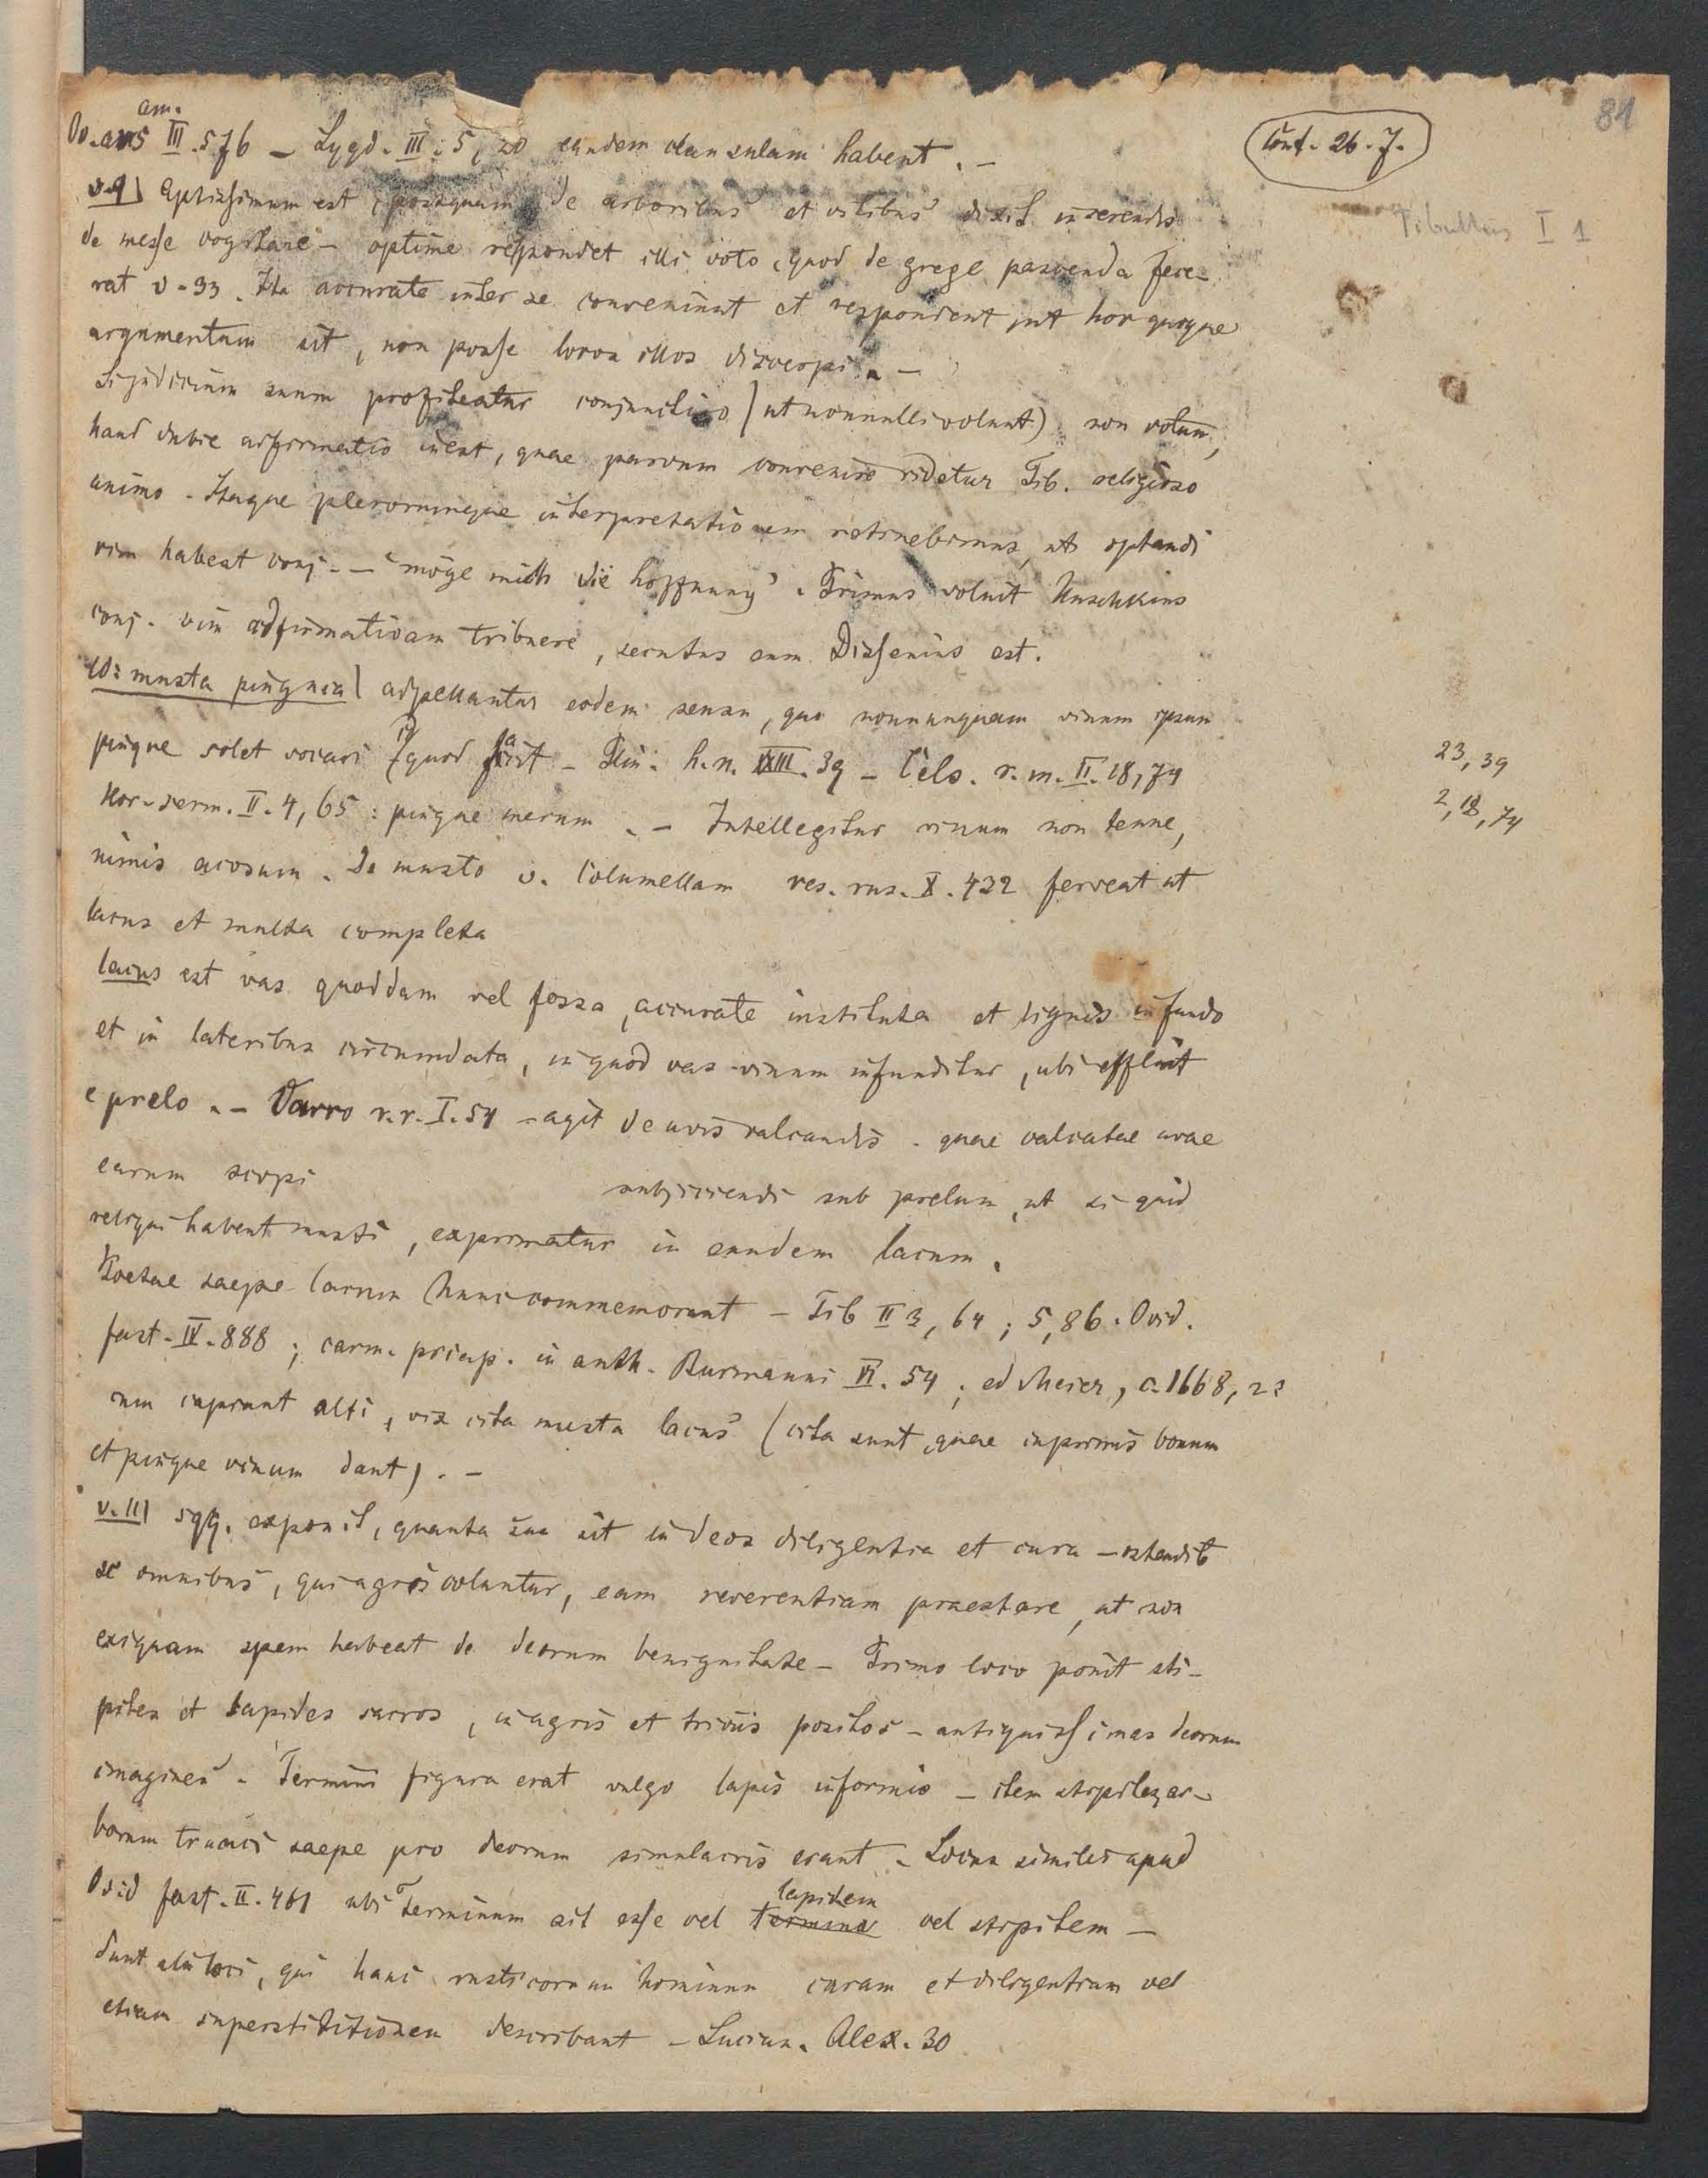 81
am.
Ov. ars III. 576 – Lygd. III. 5, 20 eandem clausulam habent. –
Conf. 26. 7.
v. 9) Aptissimum est, postquam de arboribus et vitibus dixit inserendis
Tibullus I 1
de messe cogitare – optime respondet illi voto, quod de grege pascenda fece-
rat v. 33. Ita accurate inter se conveniunt et respondent, ut hoc quoque
argumentum sit, non posse locos illos discerpi. –
Si judicium suum profiteatur conjunctivo (ut nonnulli volunt) non votum,
haud dubie adfirmatio inest, quae parvum convenire videtur Tib. religioso
animo. Itaque plerorumque interpretationem retinebimus, ut optandi
vim habeat conj. – "möge mich die Hoffnung". Primus voluit Huschkius
conj. vim adfirmativam tribuere, secutus eum Dissenius est.
10: musta pinguia) adpellantur eodem sensu, quo nonnunquam vinum ipsum
pingue solet vocari – Plin. h. n. XXIII. 39 – Cels. r. m. II. 18, 74
23, 39
Hor. serm. II. 4, 65: pingue merum. – Intellegitur vinum non tenue,
2, 18, 74
nimis acosum. De musto v. Columellam res. rus. X. 432 ferveat ut
lacus et multa completa
lacus est vas quoddam vel fossa, accurate instituta et lignis in fundo
et in lateribus circumdata, in quod vas vinum infunditur, ubi effluit
e prelo. – Varro r. r. I. 54 – agit de uvis calcandis. quae calcatae uvae
earum scopi subjiciendi sub prelum, ut si quid
reliqui habent musti, exprimatur in eundem lacum.
Poetae saepe lacum hunc commemorant – Tib II 3, 64; 5, 86. Ovid.
fast. IV. 888; carm. priap. in anth. Burmanni VI. 54; ed Meier, c. 1668, 23
num cupiunt alti, vix cita musta lacus (cita sunt, quae inprimis bonum
et pingue vinum dant). –
v. 11) sqq. exponit, quanta sua sit in deos diligentia et cura – ostendit
se omnibus, qui agris coluntur, eam reverentiam praestare, ut non
exiguam spem habeat de deorum benignitate – Primo loco ponit sti-
pites et lapides sacros, in agris et triviis positos – antiquissimas deorum
imagines. Termini figura erat vulgo lapis informis – item stipites, ar-
borum trunci saepe pro deorum simulacris erant. Locus similis apud
Ovid fast. II. 461 ubi Terminum ait esse vel lapidem vel stipitem –
Sunt alii loci, qui hanc rusticorum hominum curam et diligentiam vel
etiam superstititionem describant – Lucian. Alex. 30